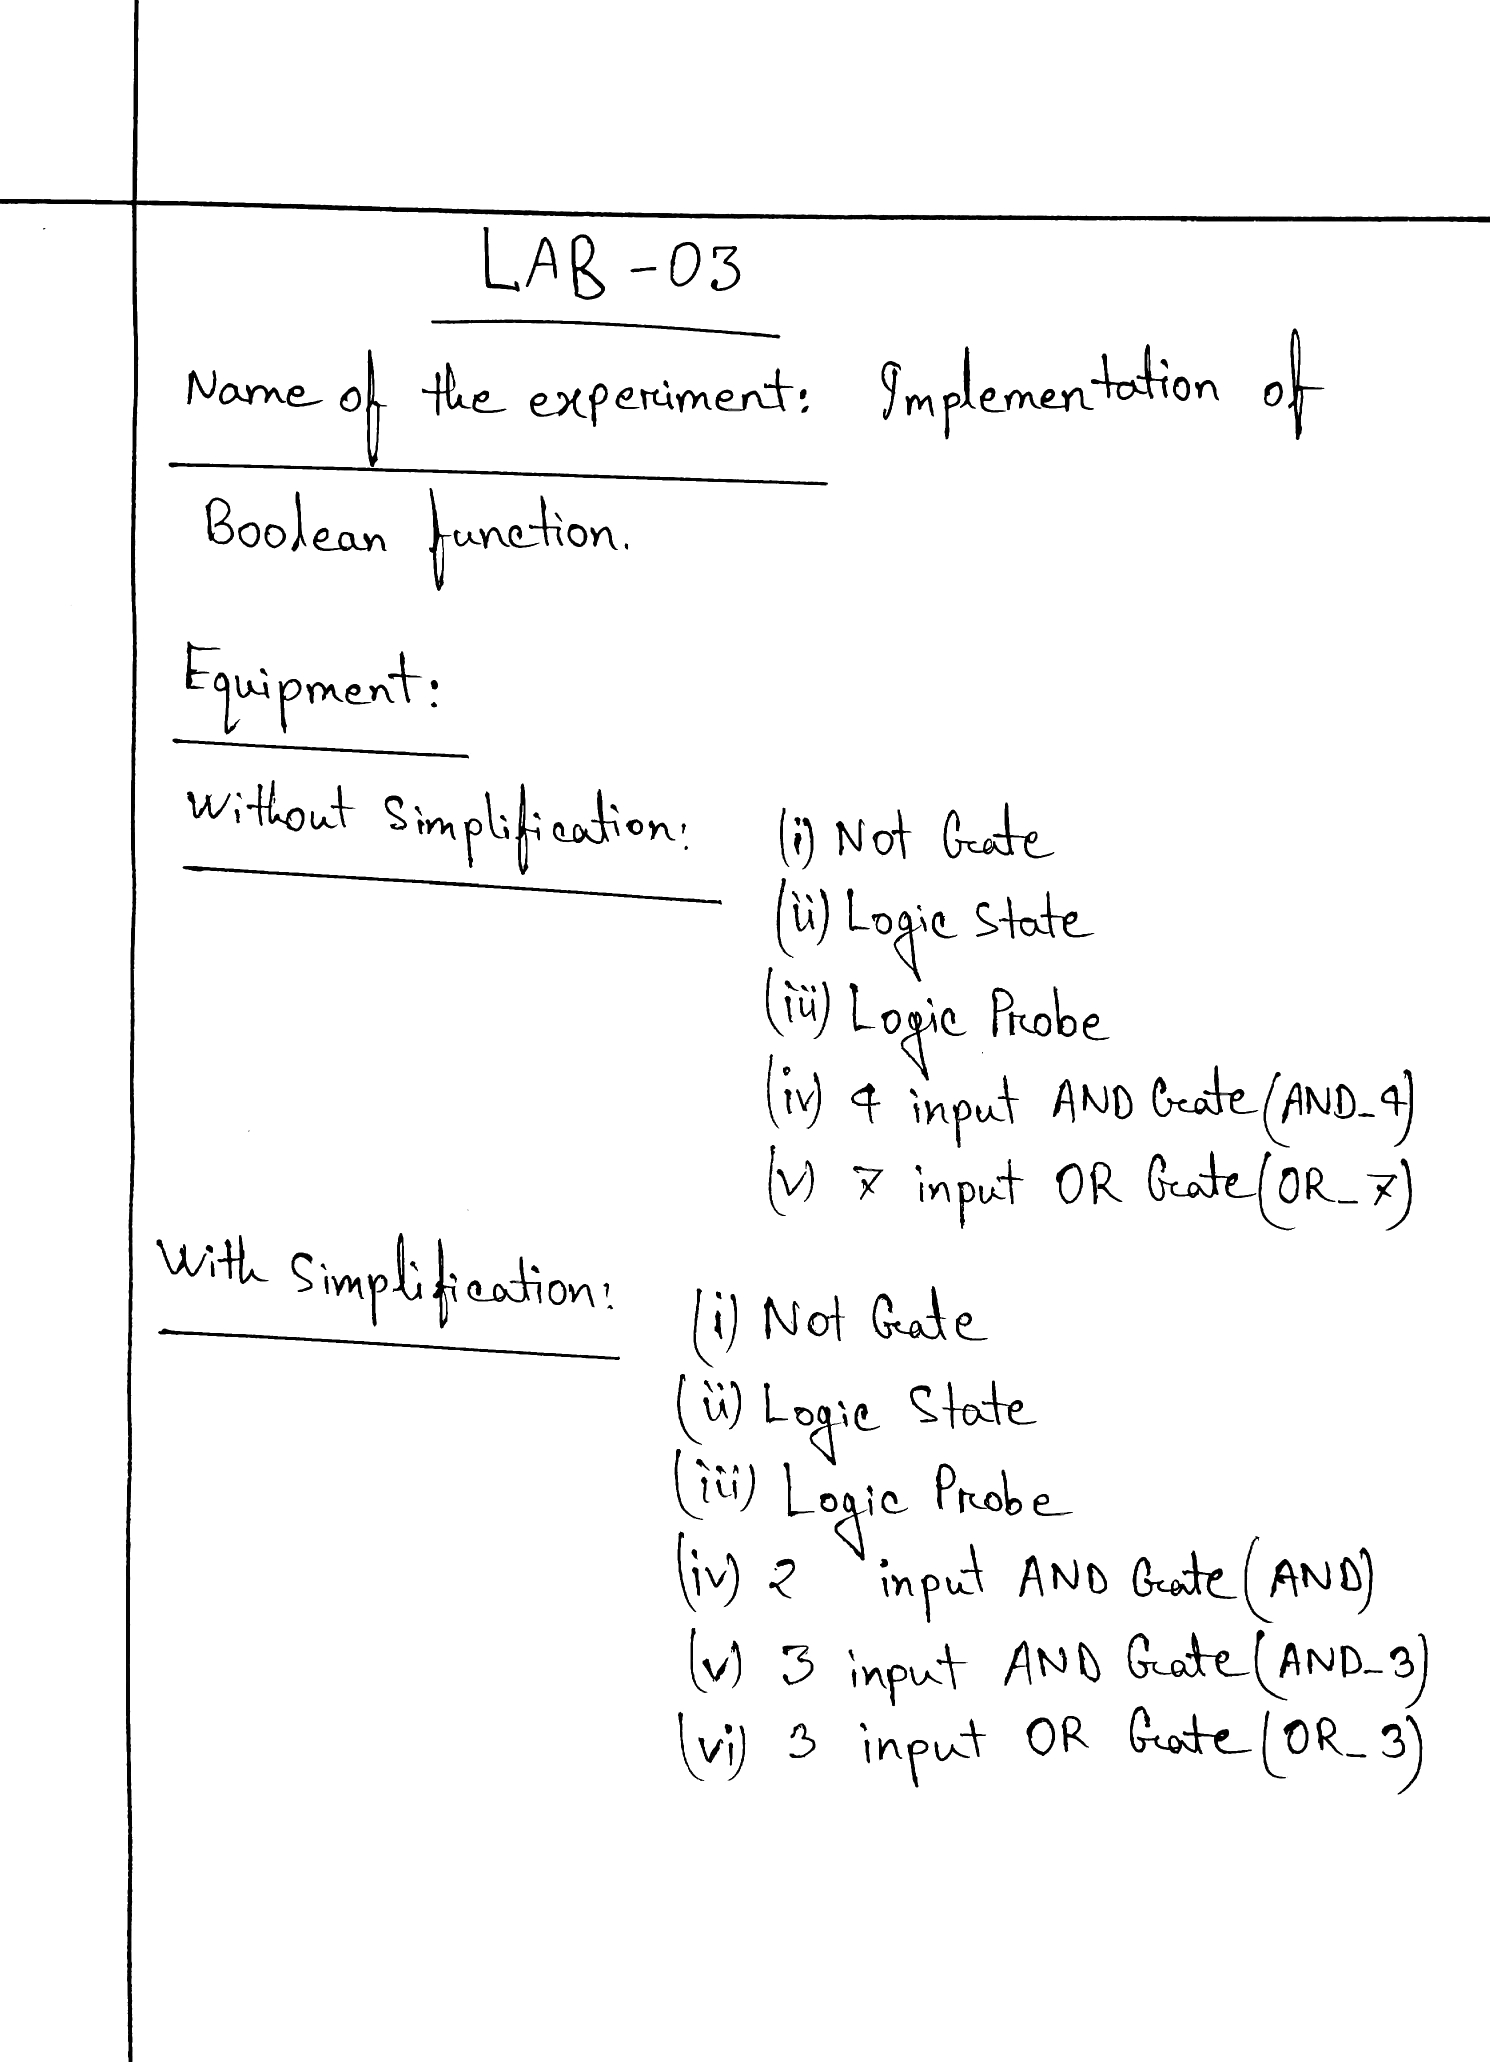 LAB-03
Name of the experiment: Implementation of
Boolean function.
Equipment:
Without Simplification: (i) Not Gate
(ii) Logic State
(iii) Logic Probe
(iv) 4 input AND Gate (AND_4)
(v) 7 input OR Gate (OR_7)
With Simplification: (i) Not Gate
(ii) Logic State
(iii) Logic Probe
(iv) 2 input AND Gate (AND)
(v) 3 input AND Gate (AND_3)
(vi) 3 input OR Gate (OR_3)